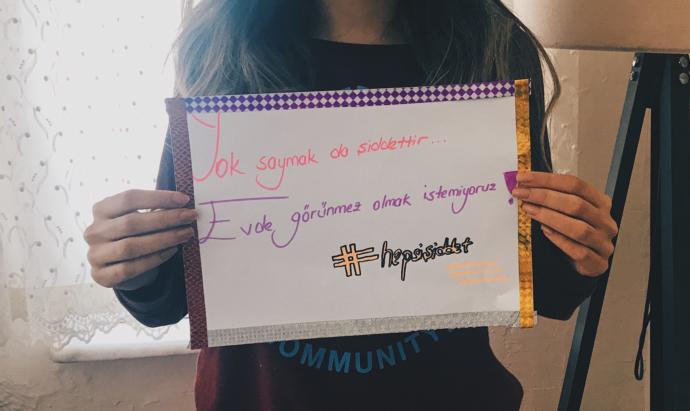 Yok saymak da şiddettir...
Evde görünmez olmak istemiyoruz!
#hepsişiddet
COMMUNITY